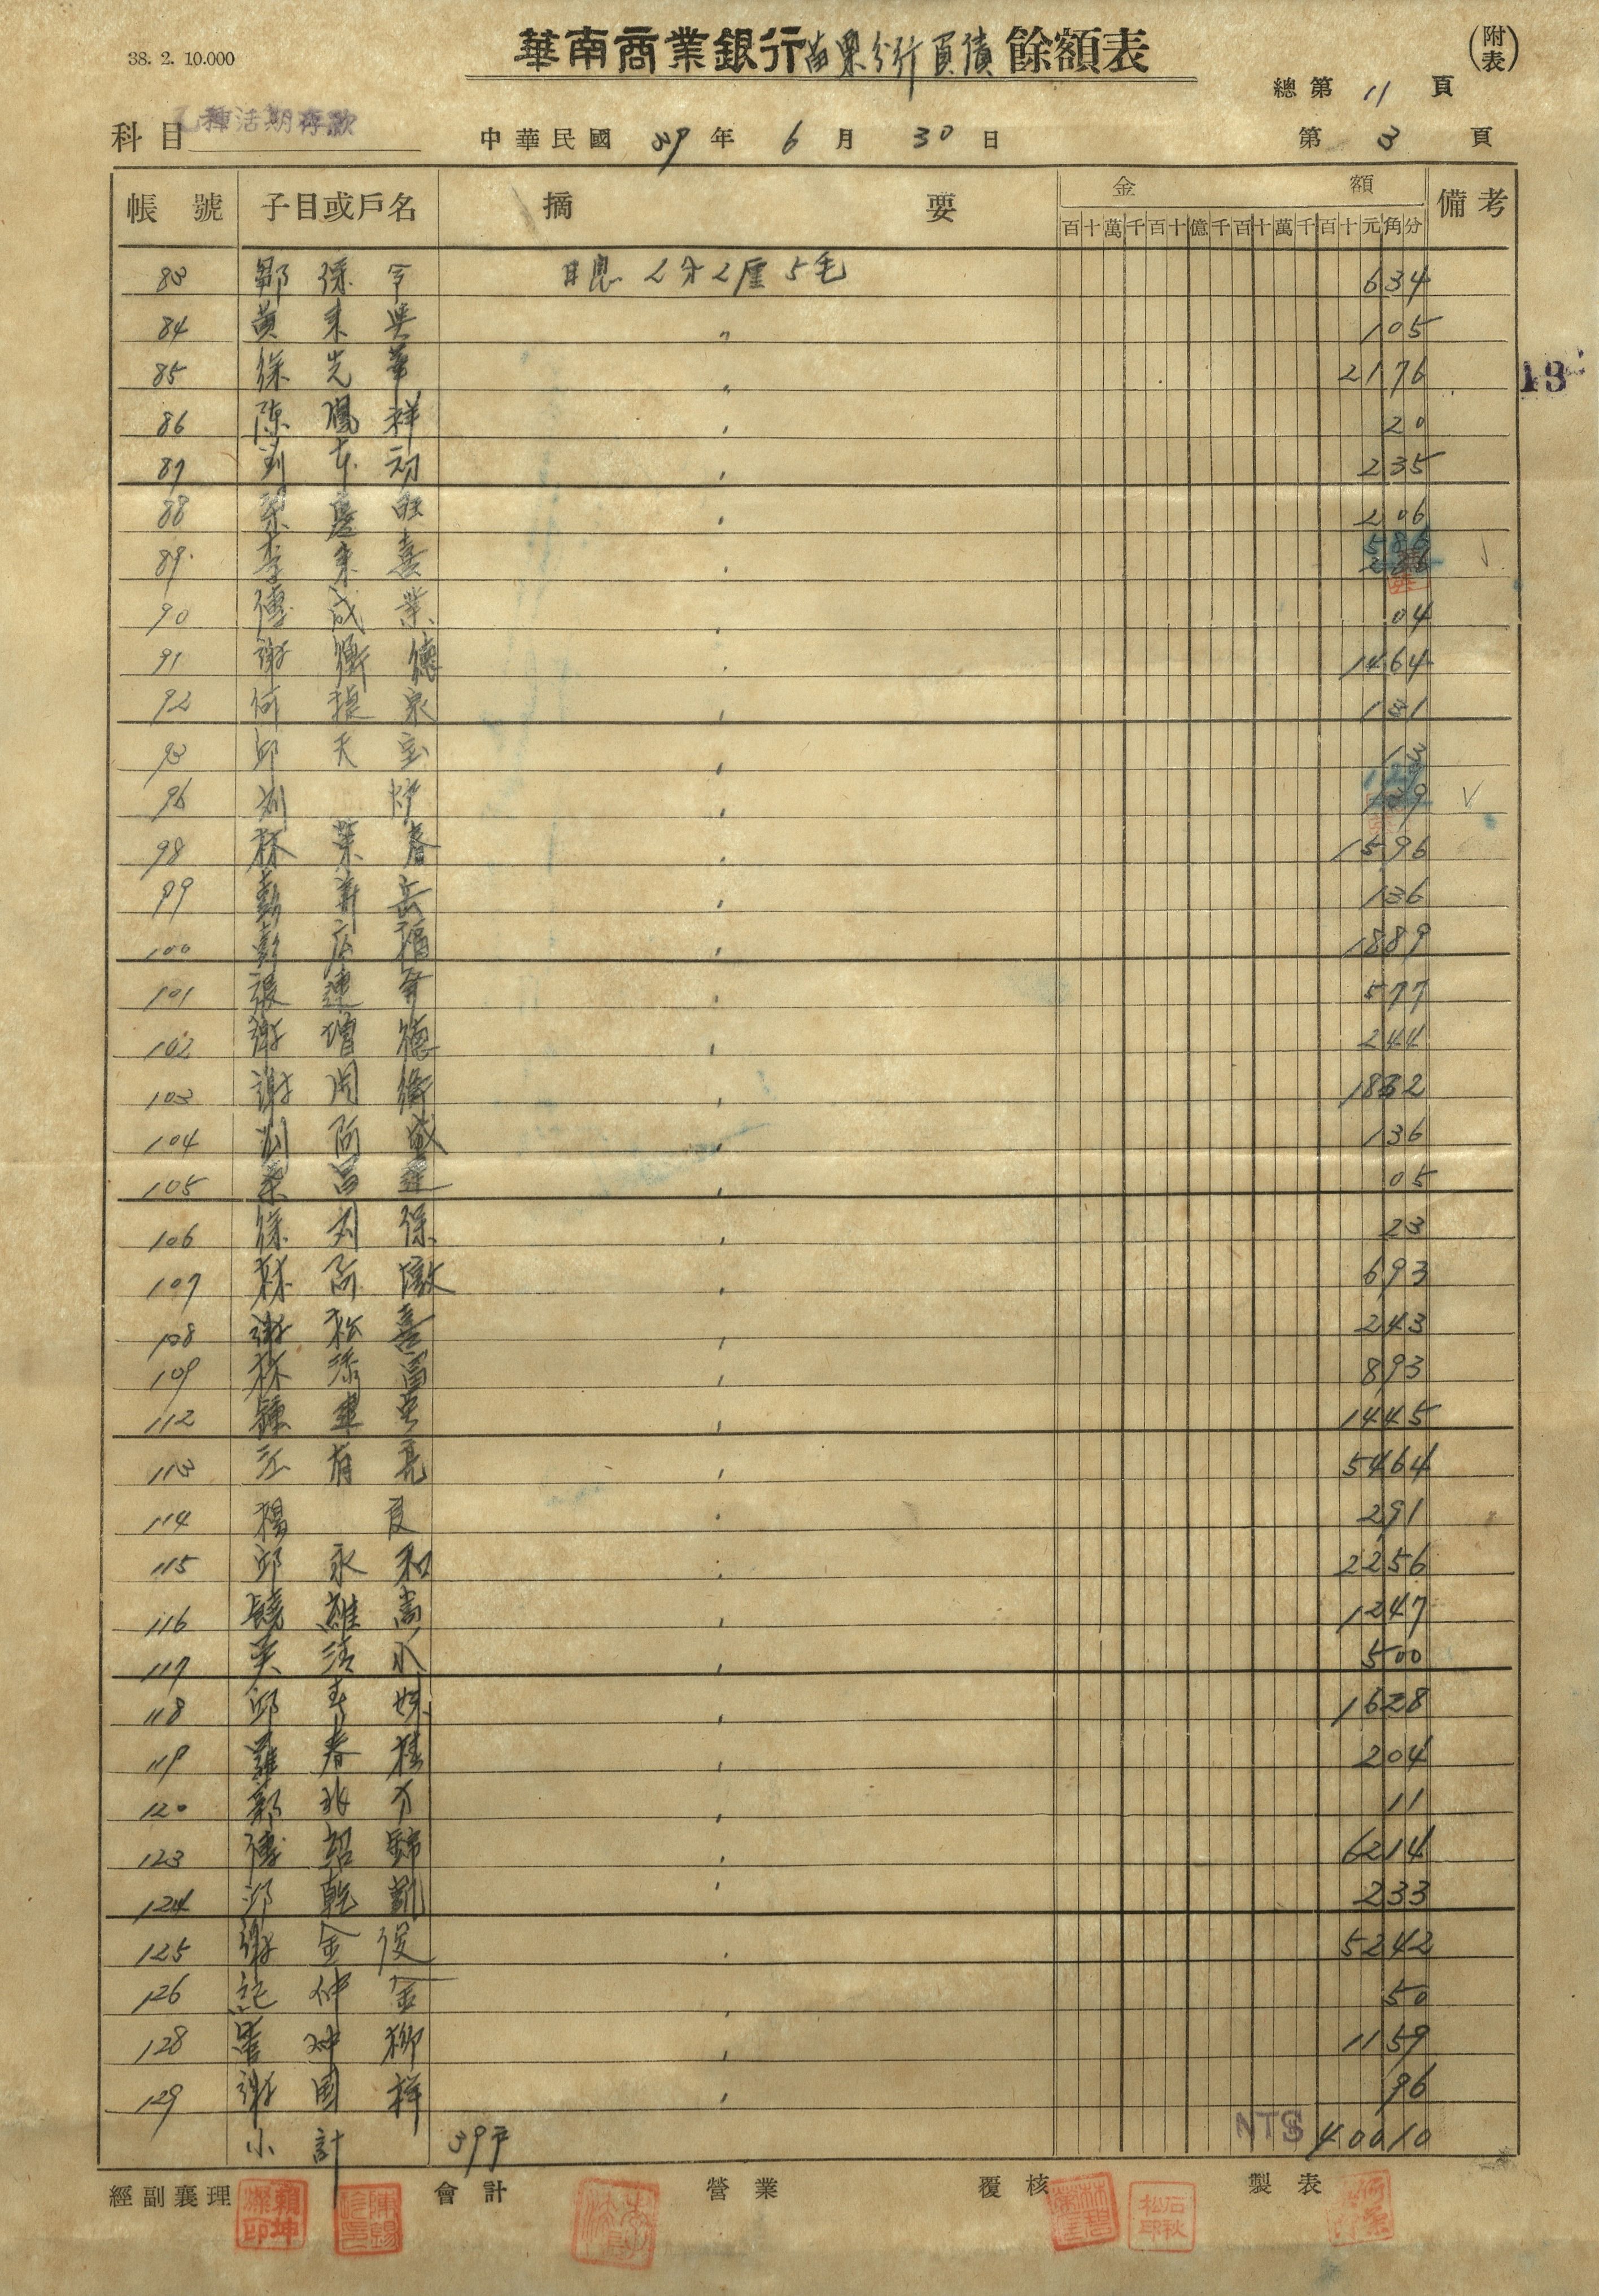 38. 2. 10.000
華南商業銀行苗栗分行負債餘額表
(附表)
總第 11 頁
科目 乙種活期存款
中華民國 39 年 6 月 30 日
第 3 頁
帳號 子目或戶名 摘要 金額 備考
百十萬千百十億千百十萬千百十元角分
83 鄒保令 日息 2分2厘5毛 634
84 黃來興 〃 105
85 徐先華 〃 2176
13
86 陳鳳祥 〃 20
87 劉本初 〃 235
88 梁慶旺 〃 206
586
89 李來喜 〃 ✓
90 傅成業 〃 04
91 謝衡德 〃 1464
92 何振泉 〃 131
93 邱天宝 〃 13
129
96 劉 〃 ✓
98 林業春 〃 1596
99 彭新岳 〃 136
100 彭広福 〃 1889
101 張連 〃 577
102 謝增德 〃 244
103 謝周衡 〃 1832
104 劉阿盛 〃 136
105 梁昌達 〃 05
106 徐列保 〃 23
107 林阿 〃 693
108 謝松喜 〃 243
109 林添富 〃 893
112 鍾建英 〃 1445
113 江有亮 〃 5464
114 楊良 〃 291
115 邱永和 〃 2256
116 饒維嵩 〃 1247
117 吳清水 〃 500
118 邱春妹 〃 1628
119 羅春桂 〃 204
120 郭兆才 〃 11
123 傅紹錦 〃 6214
124 邱乾凱 〃 233
125 謝金俊 〃 5242
126 仲金 〃 50
128 坤柳 〃 1159
129 謝国祥 〃 96
小計 39戶 NT$ 40010
經副襄理 會計 營業 覆核 製表
賴坤燦印
石秋松印